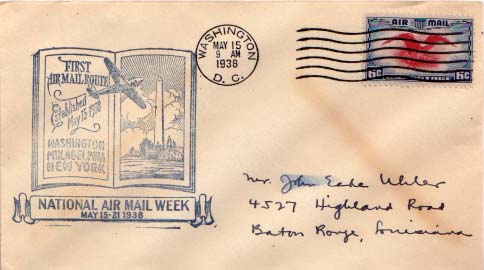 FIRST
AIR MAIL ROUTE
Established
May 15, 1918
WASHINGTON
PHILADELPHIA
NEW YORK
NATIONAL AIR MAIL WEEK
MAY 15-21 1938
WASHINGTON
MAY 15
9 AM
1938
D. C.
AIR MAIL
6c POSTAGE 6c
Mr. John Earle Uhler
4527 Highland Road
Baton Rouge, Louisiana